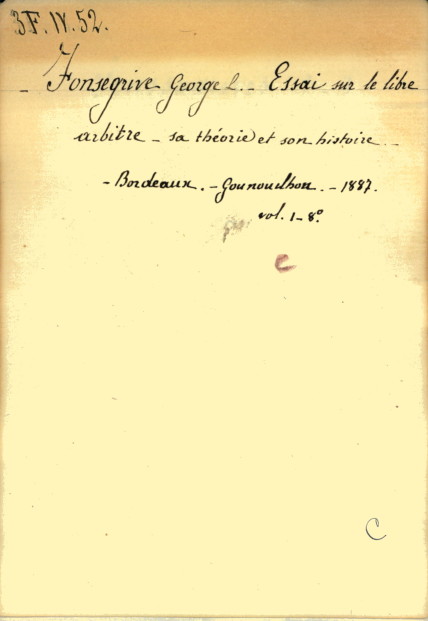 3F.IV.52.
- Fonsegrive George L. - Essai sur le libre
arbitre - sa théorie et son histoire -
- Bordeaux. - Gounouilhou. - 1887.
vol. 1 - 8º
C
C